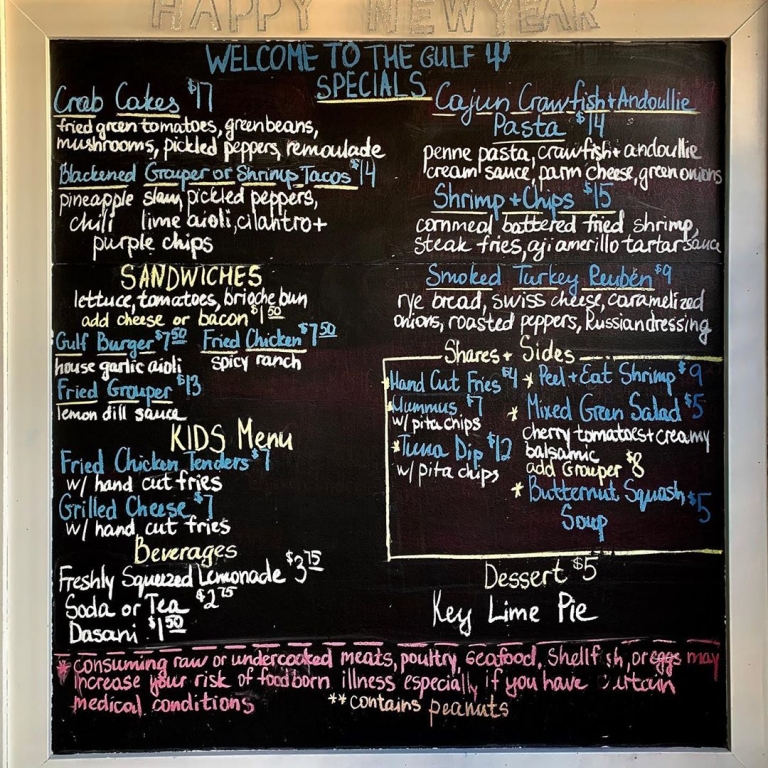 HAPPY NEW YEAR
WELCOME TO THE GULF
SPECIALS
Crab Cakes $17
fried green tomatoes, greenbeans,
mushrooms, pickled peppers, remoulade
Blackened Grouper or Shrimp Tacos $14
pineapple slaw, pickled peppers,
chili lime aioli, cilantro+
purple chips
Cajun Crawfish+Andoullie
Pasta $14
penne pasta, crawfish+ andoullie
cream sauce, parm cheese, green onions
Shrimp+Chips $15
cornmeal battered fried shrimp,
steak fries, aji amerillo tartar sauce
SANDWICHES
lettuce, tomatoes, brioche bun
add cheese or bacon $1.50
Gulf Burger $7.50 Fried Chicken $7.50
house garlic aioli spicy ranch
Fried Grouper $13
lemon dill sauce
Smoked Turkey Reuben $9
rye bread, swiss cheese, caramelized
onions, roasted peppers, Russian dressing
KIDS Menu
Fried Chicken Tenders $7
w/ hand cut fries
Grilled Cheese $7
w/ hand cut fries
Beverages
Freshly Squeezed Lemonade $3.75
Soda or Tea $2.75
Dasani $1.50
Shares + Sides
*Hand Cut Fries $4
*Hummus $7
w/ pita chips
*Tuna Dip $12
w/ pita chips
* Peel+Eat Shrimp $9
* Mixed Green Salad $5
cherry tomatoes+creamy
balsamic
add Grouper $8
* Butternut Squash $5
Soup
Dessert $5
Key Lime Pie
* consuming raw or undercooked meats, poultry, seafood, Shellfish, or eggs may
increase your risk of foodborn illness especially if you have certain
medical conditions **contains peanuts